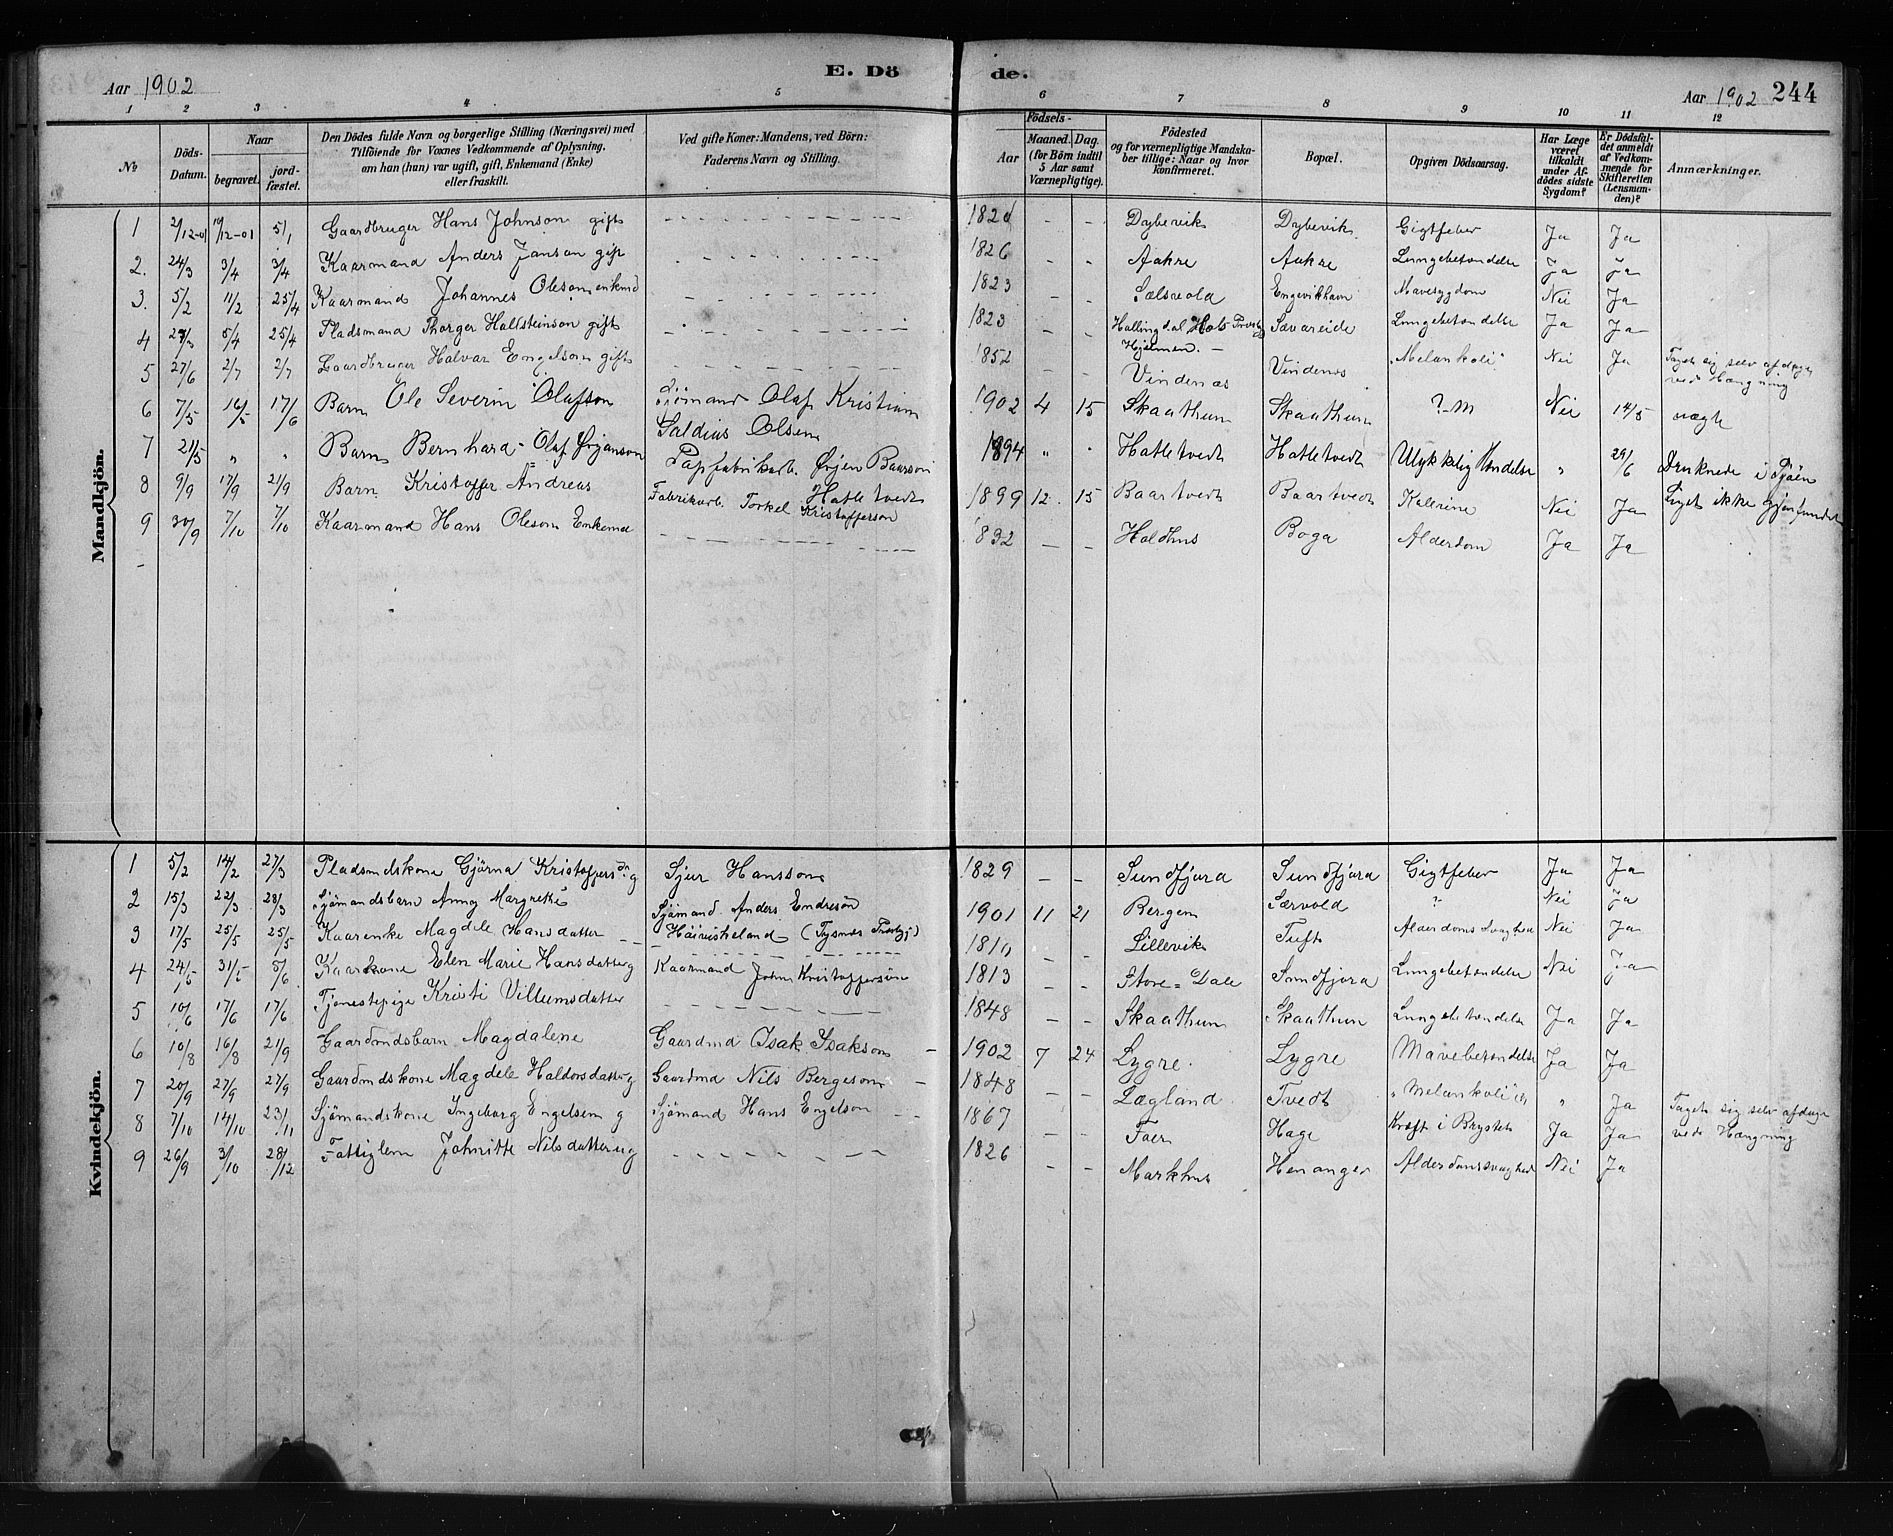 Aar 1902 E. Dö de. Aar 1902 244
1 2 3 4 5 6 7 8 9 10 11 12
No.
Döds-Datum.
Naar
begravet.
jord-fæstet.
Den Dödes fulde Navn og borgerlige Stilling (Næringsvei) med
Tilföiende for Voxnes Vedkommende af Oplysning,
om han (hun) var ugift, gift, Enkemand (Enke)
eller fraskilt.
Ved gifte Koner: Mandens, ved Börn:
Faderens Navn og Stilling.
Födsels-
Aar
Maaned. Dag.
(for Börn indtil
5 Aar samt
Værnepligtige).
Födested
og for værnepligtige Mandska-
ber tillige: Naar og hvor
konfirmeret.
Bopæl.
Opgiven Dödsaarsag.
Har Læge
været
tilkaldt
under Af-
dödes sidste
Sygdom?
Er Dödsfal-
det anmeldt
af Vedkom-
mende for
Skifteretten
(Lensman-
den)?
Anmærkninger.
Mandkjön.
1 2/12-01 19/12-01 5/1 Gaardbruger Hans Johnson gift 1820 - - Dybevik Dybevik Gigtfeber Ja Ja
2. 24/3 3/4 3/4 Kaarmand Anders Janson gift 1826 - - Aakre Aakre Lungebetændelse Ja Ja
3. 5/2 11/2 25/4 Kaarmand Johannes Oleson enkmd 1823 - - Sælsvold Engevikhavn Mavesygdom Nei Ja
4 5/4 25/4 Pladsmand Thorger Hallsteinson gift 1823 - - Hallingdal Hols Prestgj Sævareide Lungebetændelse Ja Ja
Hjelmen. -
5 27/6 2/7 2/7 Gaardbruger Halvar Engelson gift 1852 - - Vindenæs Vindenæs "Melankoli" Nei Ja Taget sig selv afdage
ved Hængning
6 7/5 16/5 17/6 Barn Ole Severin Olafson Sjömand Olaf Kristian 1902 4 15 Skaathun Skaathun ?-M Nei 14/5 vægt
Saldius Olsen
7 21/5 " " Barn Bernhard Olaf Ørjanson Papfabrikarb. Ørjen Baarson 1894 " " Hatletvedt Hatletvedt Ulykkelig Hændelse " 29/6 Druknede i Sjöen
Hatletvedt Liget ikke gjenfundet
8 9/9 17/9 21/9 Barn Kristoffer Andreas Fabrikarb. Torkel Kristofferson 1899 12 15 Baartvedt Baartvedt Kolerine Nei Ja
9 30/9 7/10 7/10 Kaarmand Hans Oleson Enkemd 1832 - - Holdhus Boga Alderdom Ja Ja
Kvindekjön.
1 5/2 14/2 27/3 Pladsmdskone Gjörna Kristoffersdtr g Sjur Hansson 1829 - - Sundfjord Sundfjord Gigtfeber Ja Ja
2 15/3 22/3 28/3 Sjömandsbarn Anna Margrethe Sjömand. Anders Endreson 1901 11 21 Bergen Særvold ? Nei Ja
Höivisheland (Tysnes Prestgj)
3 17/5 25/5 25/5 Kaarenke Magdele Hansdatter 1810 Lillevik Tuft Alderdomssvaghed Nei Ja
4 24/5 31/5 5/6 Kaarkone Elen Marie Hansdatter g Kaarmand John Kristofferson 1813 - - Store-Dale Sundfjord Lungebetændelse Nei Ja
5 10/6 17/6 17/6 Tjenestepige Kristi Villumsdatter 1848 - - Skaathun Skaathun Lungebetændelse Ja Ja
6 10/8 16/8 21/9 Gaardmdsbarn Magdalene Gaardmd Isak Isakson 1902 7 24 Lygre Lygre Mavebetændelse Ja Ja
7 20/9 27/9 27/9 Gaardmdskone Magdele Haldorsdatter g Gaardmd Nils Bergeson 1848 - - Lægland Tvedt "Melankoli" " Ja Taget sig selv afdage
ved Hængning
8 7/10 14/10 23/11 Sjömandskone Ingeborg Engelsen g Sjömand Hans Engelson 1867 - - Faer Hage Kræft i Brystet Ja Ja
9 26/9 3/10 28/12 Fattiglem Johnitte Nilsdatter ug 1826 - - Markhus Henanger Alderdomssvaghed Nei Ja